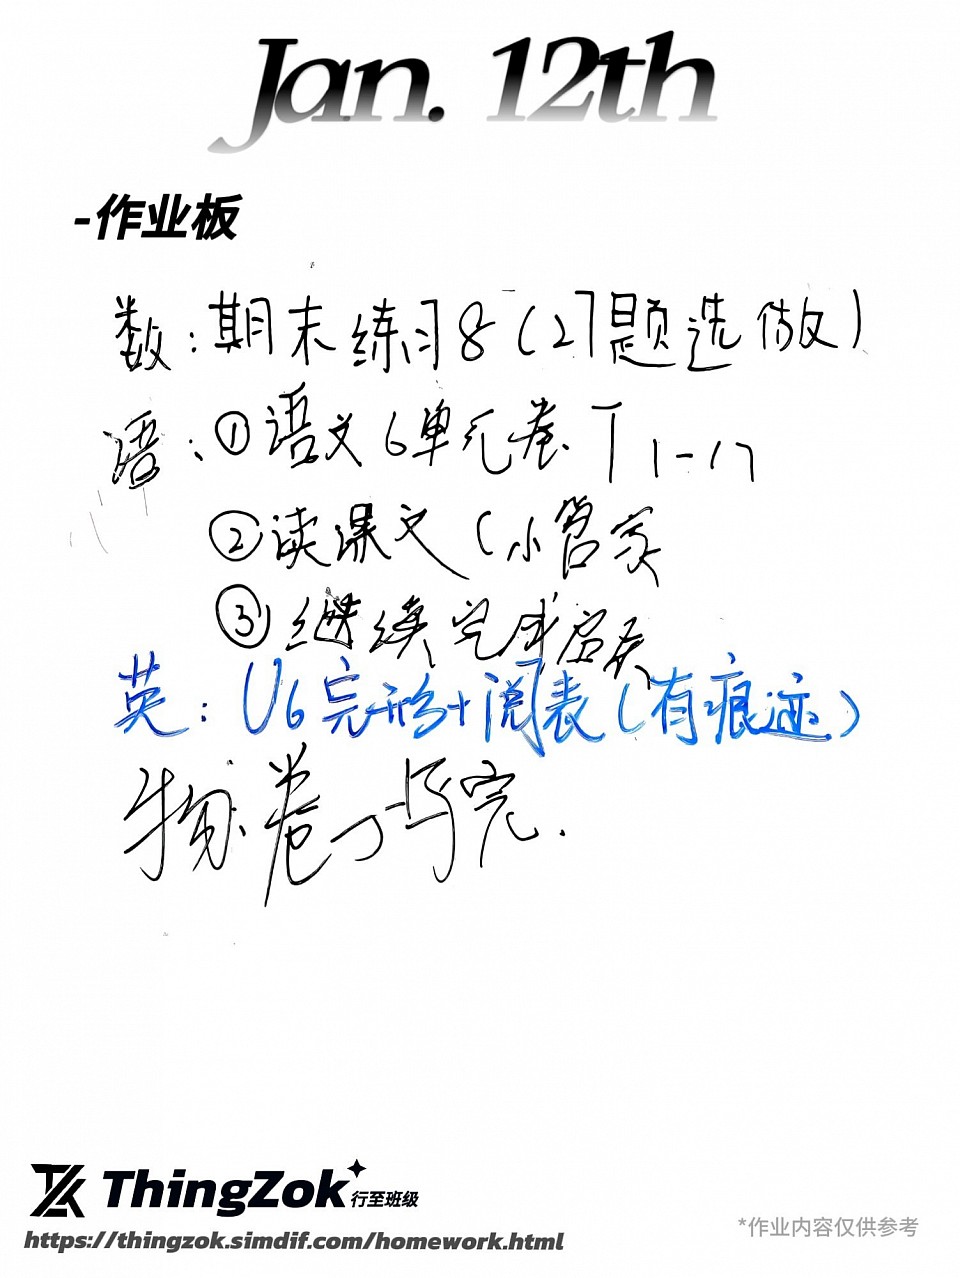 Jan. 12th
-作业板
数：期末练习8（27题选做）
语：①语文6单元卷 T1-17
②读课文（小管家
③继续完成
英：U6完形+阅表（有痕迹）
物：卷一写完.
ThingZok 行至班级
https://thingzok.simdif.com/homework.html
*作业内容仅供参考